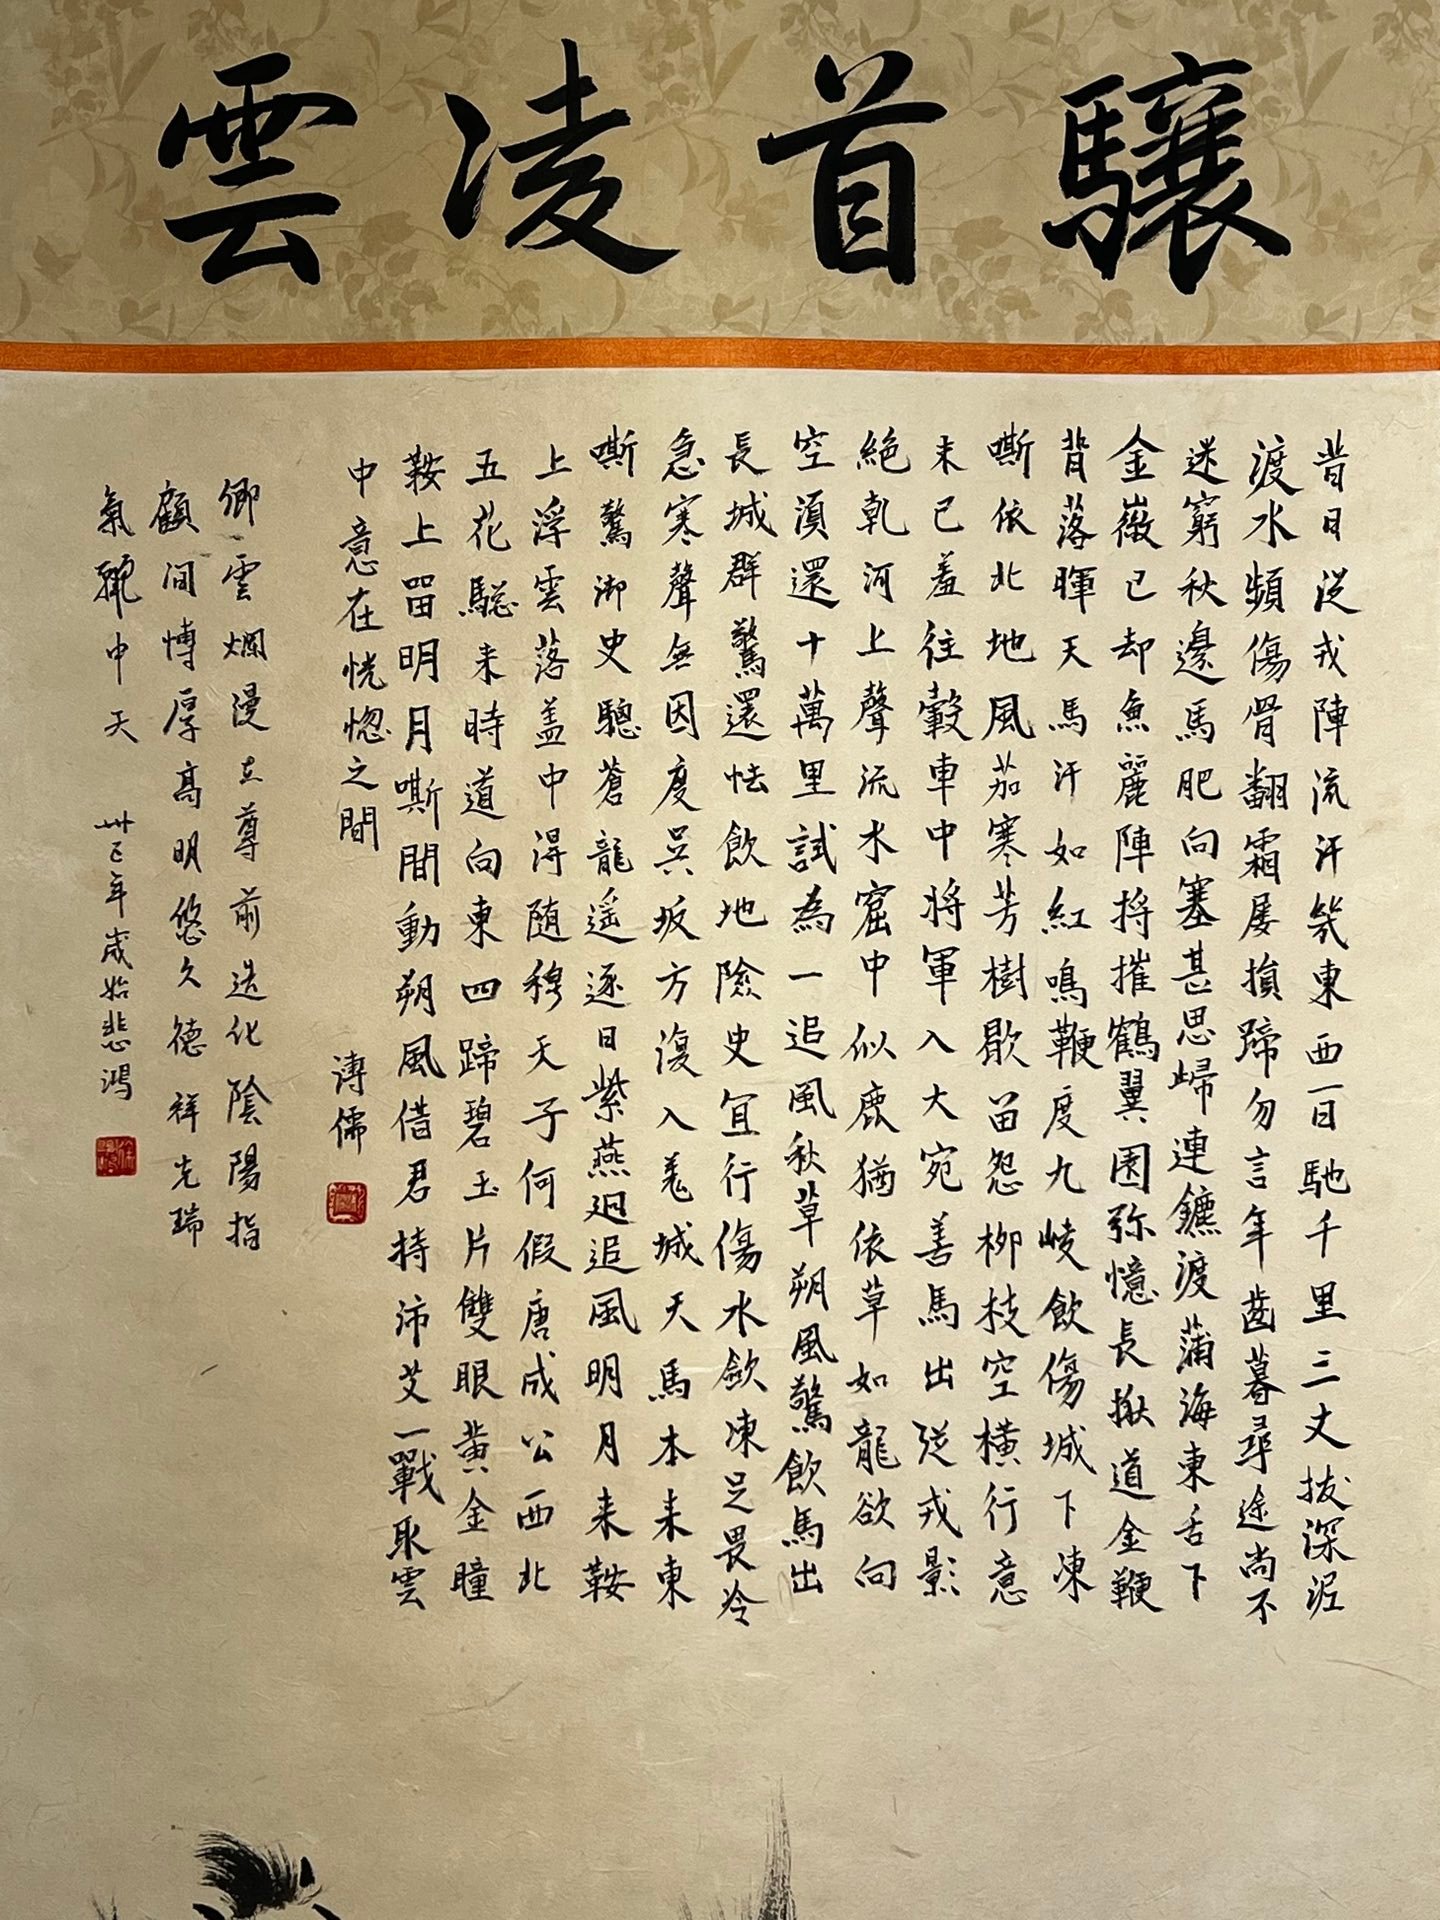 驤首凌雲
昔日從戎陣流汗幾東西一日馳千里三丈拔深泥
渡水頻傷骨翻霜屡損蹄勿言年齒暮尋途尚不
迷窮秋邊馬肥向塞甚思歸連鑣渡蒲海東舌下
金微已却魚麗陣将摧鶴翼圍弥憶長楸道金鞭
背落暉天馬汗如紅鳴鞭度九崚飲傷城下凍
嘶依北地風茄寒芳樹歇笛怨柳枝空横行意
未已羞往轂車中将軍入大宛善馬出從戎影
絶乾河上聲流水窟中似鹿猶依草如龍欲向
空須還十萬里試為一追風秋草朔風驚飲馬出
長城群驚還怯飲地險史宜行傷水歛凍足畏冷
急寒聲無因度吳坂方復入羌城天馬本来東
嘶驚御史驄蒼龍遥逐日紫燕迥追風明月来鞍
上浮雲落盖中得随穆天子何假唐成公西北
五花驄来時道向東四蹄碧玉片雙眼黄金瞳
鞍上留明月嘶間動朔風借君持沛艾一戰取雲
中 意在恍惚之間
溥儒
卿雲爛漫立尊前造化陰陽指
顧间博厚髙明悠久德祥光瑞
氣飘中天 卅五年歲始悲鴻